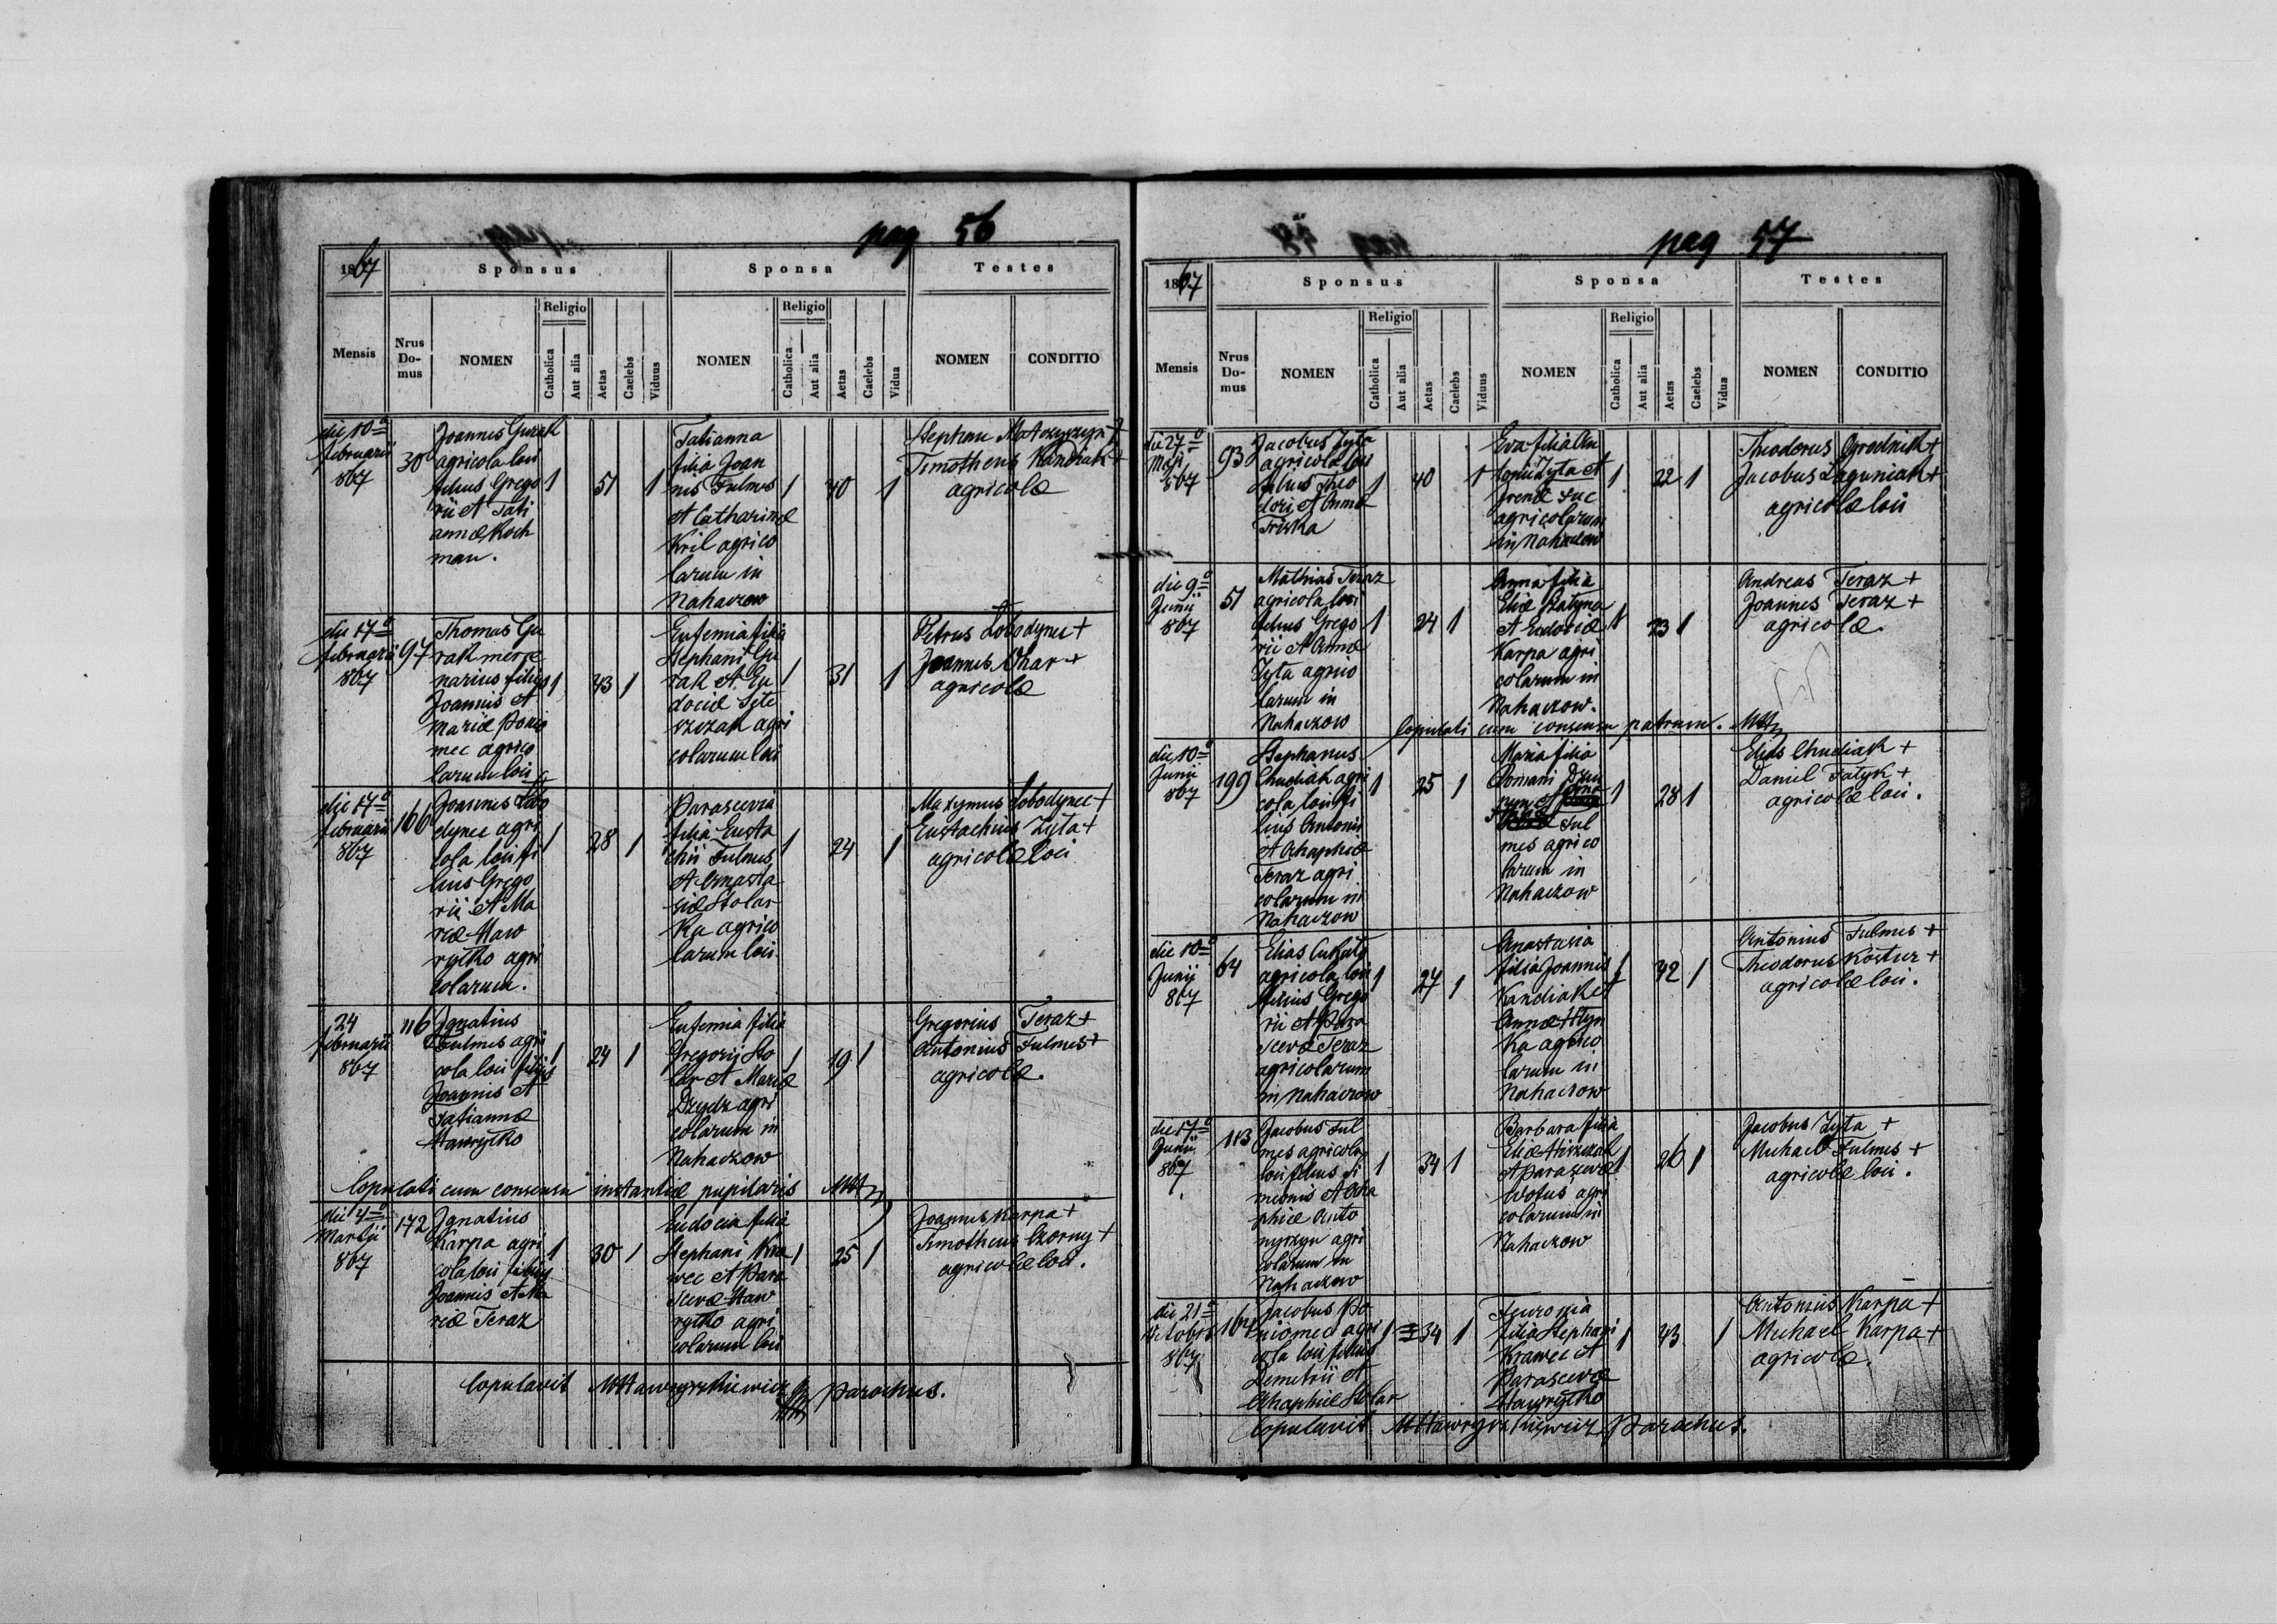 pag 56
1867
Sponsus
Sponsa
Testes
Mensis
Nrus Domus
NOMEN
Religio
Catholica
Aut alia
Aetas
Caelebs
Viduus
NOMEN
Religio
Catholica
Aut alia
Aetas
Caelebs
Vidua
NOMEN
CONDITIO
die 10a
februarii
867
30
Joannes Gurak
agricola loci
filius Grego
rii et Tati
annæ Koch
man.
1
51
1
Tatianna
filia Joan
nis Fulmes
et Catharinæ
Kril agrico
larum in
Nahaczow
1
40
1
Stephan Matczyszyn +
Timotheus Kandiak +
agricolæ
die 17a
februarii
867
97
Thomas Gu
rak merce
narius filius
Joannis et
Mariæ Ponio
mec agrico
larum loci
1
43
1
Eufemia filia
Stephani Gu
rak et Eu
dociæ
agri
colarum loci
1
31
1
Petrus Lobodynec +
Joannes Ohar +
agricolæ
die 17a
februarii
867
166
Joannes Lobo
dynec agri
cola loci fi
lius Grego
rii et Ma
riæ Haw
rytko agri
colarum.
1
28
1
Parascevia
filia Eusta
chii Fulmes
et Anasta
siæ Stolar
ka agrico
larum loci
1
24
1
Maxymus Lobodynec +
Eustachius Zyta +
agricolæ loci
24
februarii
867
116
Ignatius
Fulmes agri
cola loci filius
Joannis et
Tatiannæ
Hawrytko
1
24
1
Eufemia filia
Gregorij Sto
lar et Mariæ
Dzydz agri
colarum in
Nahaczow
1
19
1
Gregorius Teraz +
Antonius Fulmes +
agricolæ.
Copulati cum consensu instantiæ pupilaris MH
die 4a
Martii
867
172
Ignatius
Karpa agri
cola loci filius
Joannis et Ma
riæ Teraz
1
30
1
Eudocia filia
Stephani Kra
wec et Para
scevæ Haw
rytko agri
colarum loci
1
25
1
Joannes Karpa +
Timotheus Czorny +
agricolæ loci.
Copulavit MHawryszkiewicz Parochus.
pag 57
1867
Sponsus
Sponsa
Testes
Mensis
Nrus Domus
NOMEN
Religio
Catholica
Aut alia
Aetas
Caelebs
Viduus
NOMEN
Religio
Catholica
Aut alia
Aetas
Caelebs
Vidua
NOMEN
CONDITIO
die 27a
Maji
867
93
Jacobus Zyta
agricola loci
filius Theo
dori et Annæ
Triska
1
40
1
Eva filia An
tonii Zyta et
Irenæ Fuc
agricolarum
in Nahaczow
1
22
1
Theodorus Ogrodnik +
Jacobus Laguniak +
agricolæ loci
die 9a
Junii
867
51
Mathias Teraz
agricola loci
filius Grego
rii et Annæ
Zyta agrico
larum in
Nahaczow
1
24
1
Anna filia
Eliæ
et Eudociæ
Karpa agri
colarum in
Nahaczow.
1
23
1
Andreas Teraz +
Joannes Teraz +
agricolæ.
Copulati cum consensu patrum. MH
die 10a
Junii
867
199
Stephanus
Chudiak agri
cola loci fi
lius Antonii
et Ahaphiæ
Teraz agri
colarum in
Nahaczow
1
25
1
Maria filia
Romani
Ful
mes agrico
larum in
Nahaczow
1
28
1
Elias Chudiak +
Daniel Fatyk +
agricolæ loci.
die 10a
Junii
867
64
Elias
agricola loci
filius Grego
rii et Para
scevæ Teraz
agricolarum
in Nahaczow
1
27
1
Anastasia
filia Joannis
Kandiak et
Annæ Hlyn
ka agrico
larum in
Nahaczow
1
42
1
Antonius Fulmes +
Theodorus Kostur +
agricolæ loci.
die 17a
Junii
867
113
Jacobus Ful
mes agricola
loci filius Si
meonis et Aha
phiæ Anto
nyszyn agri
colarum in
Nahaczow
1
34
1
Barbara filia
Eliæ
et Parascevæ
Wotus agri
colarum in
Nahaczow
1
26
1
Jacobus Zyta +
Michael Fulmes +
agricolæ loci.
die 21a
Octobris
867
164
Jacobus Po
niomec agri
cola loci filius
Demetrii et
Ahaphiæ Stolar
1
34
1
Febronia
filia Stephani
Krawec et
Parascevæ
Hawrytko
1
43
1
Antonius Karpa +
Michael Karpa +
agricolæ.
Copulavit MHawryszkiewicz Parochus.